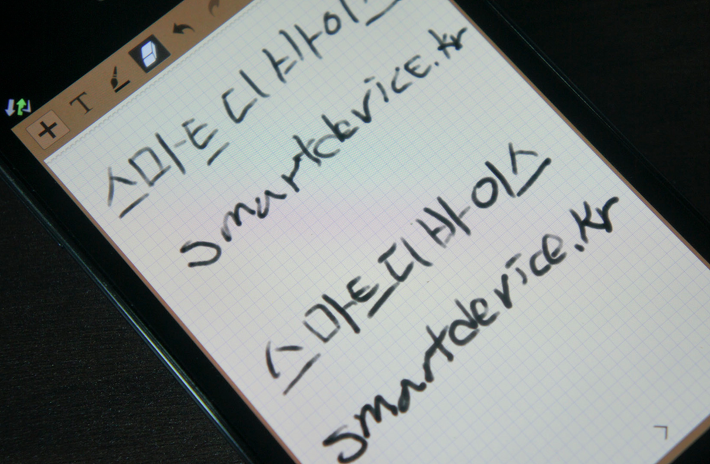 T
스마트디바이스
smartdevice.kr
스마트디바이스
smartdevice.kr